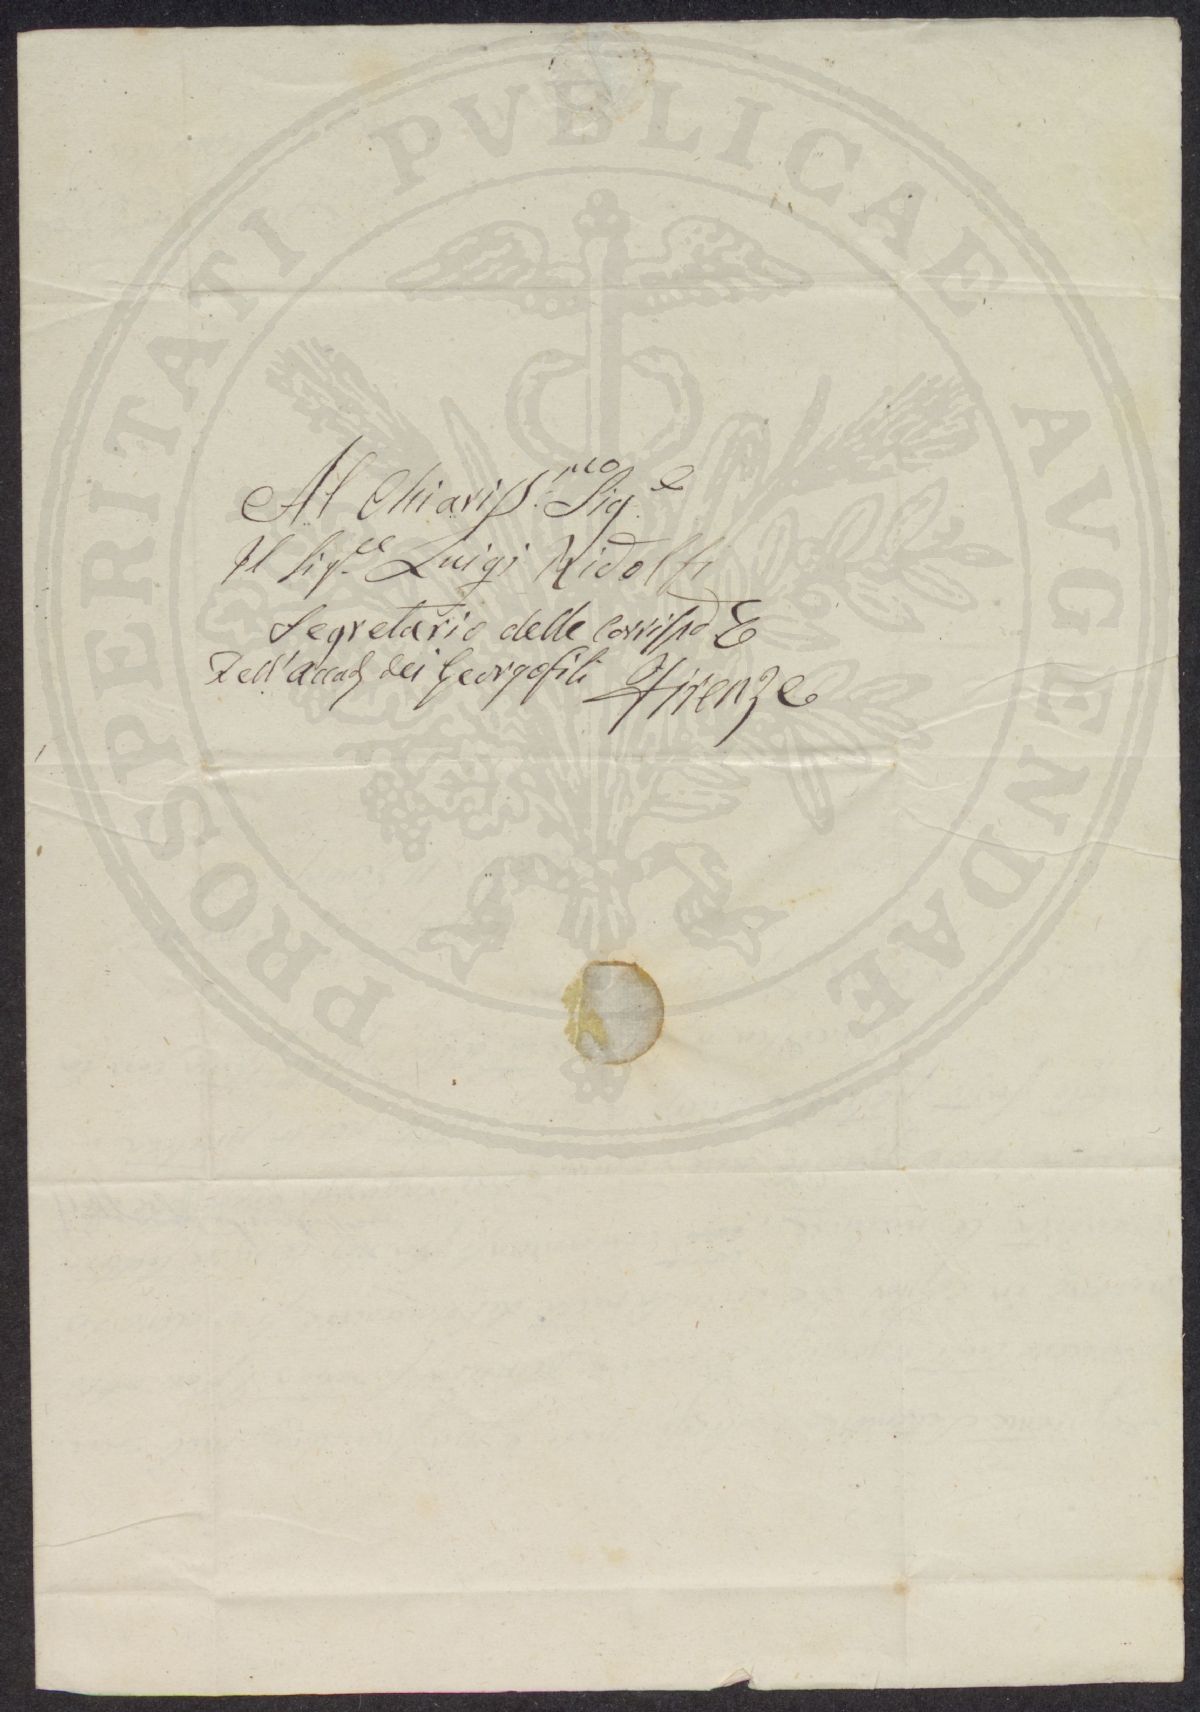 PROSPERITATI PVBLICAE AVGENDAE
Al Chiariss.mo Sig.e
Il Sig.re Luigi Ridolfi
Segretario delle Corrisp.e
Dell'Accad. dei Georgofili
Firenze